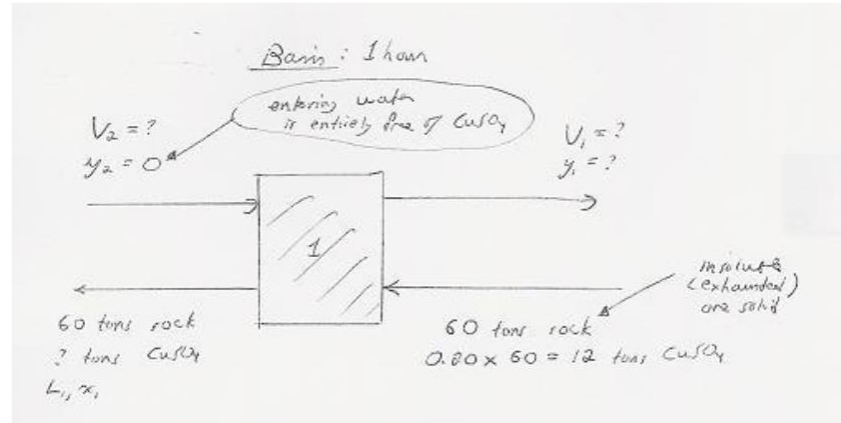 Basis: 1 hour
entering water
is entirely free of CuSO4
V2 = ?
y2 = 0
V1 = ?
y1 = ?
1
insoluble
(exhausted)
ore solid
60 tons rock
? tons CuSO4
L1, x1
60 tons rock
0.20 x 60 = 12 tons CuSO4